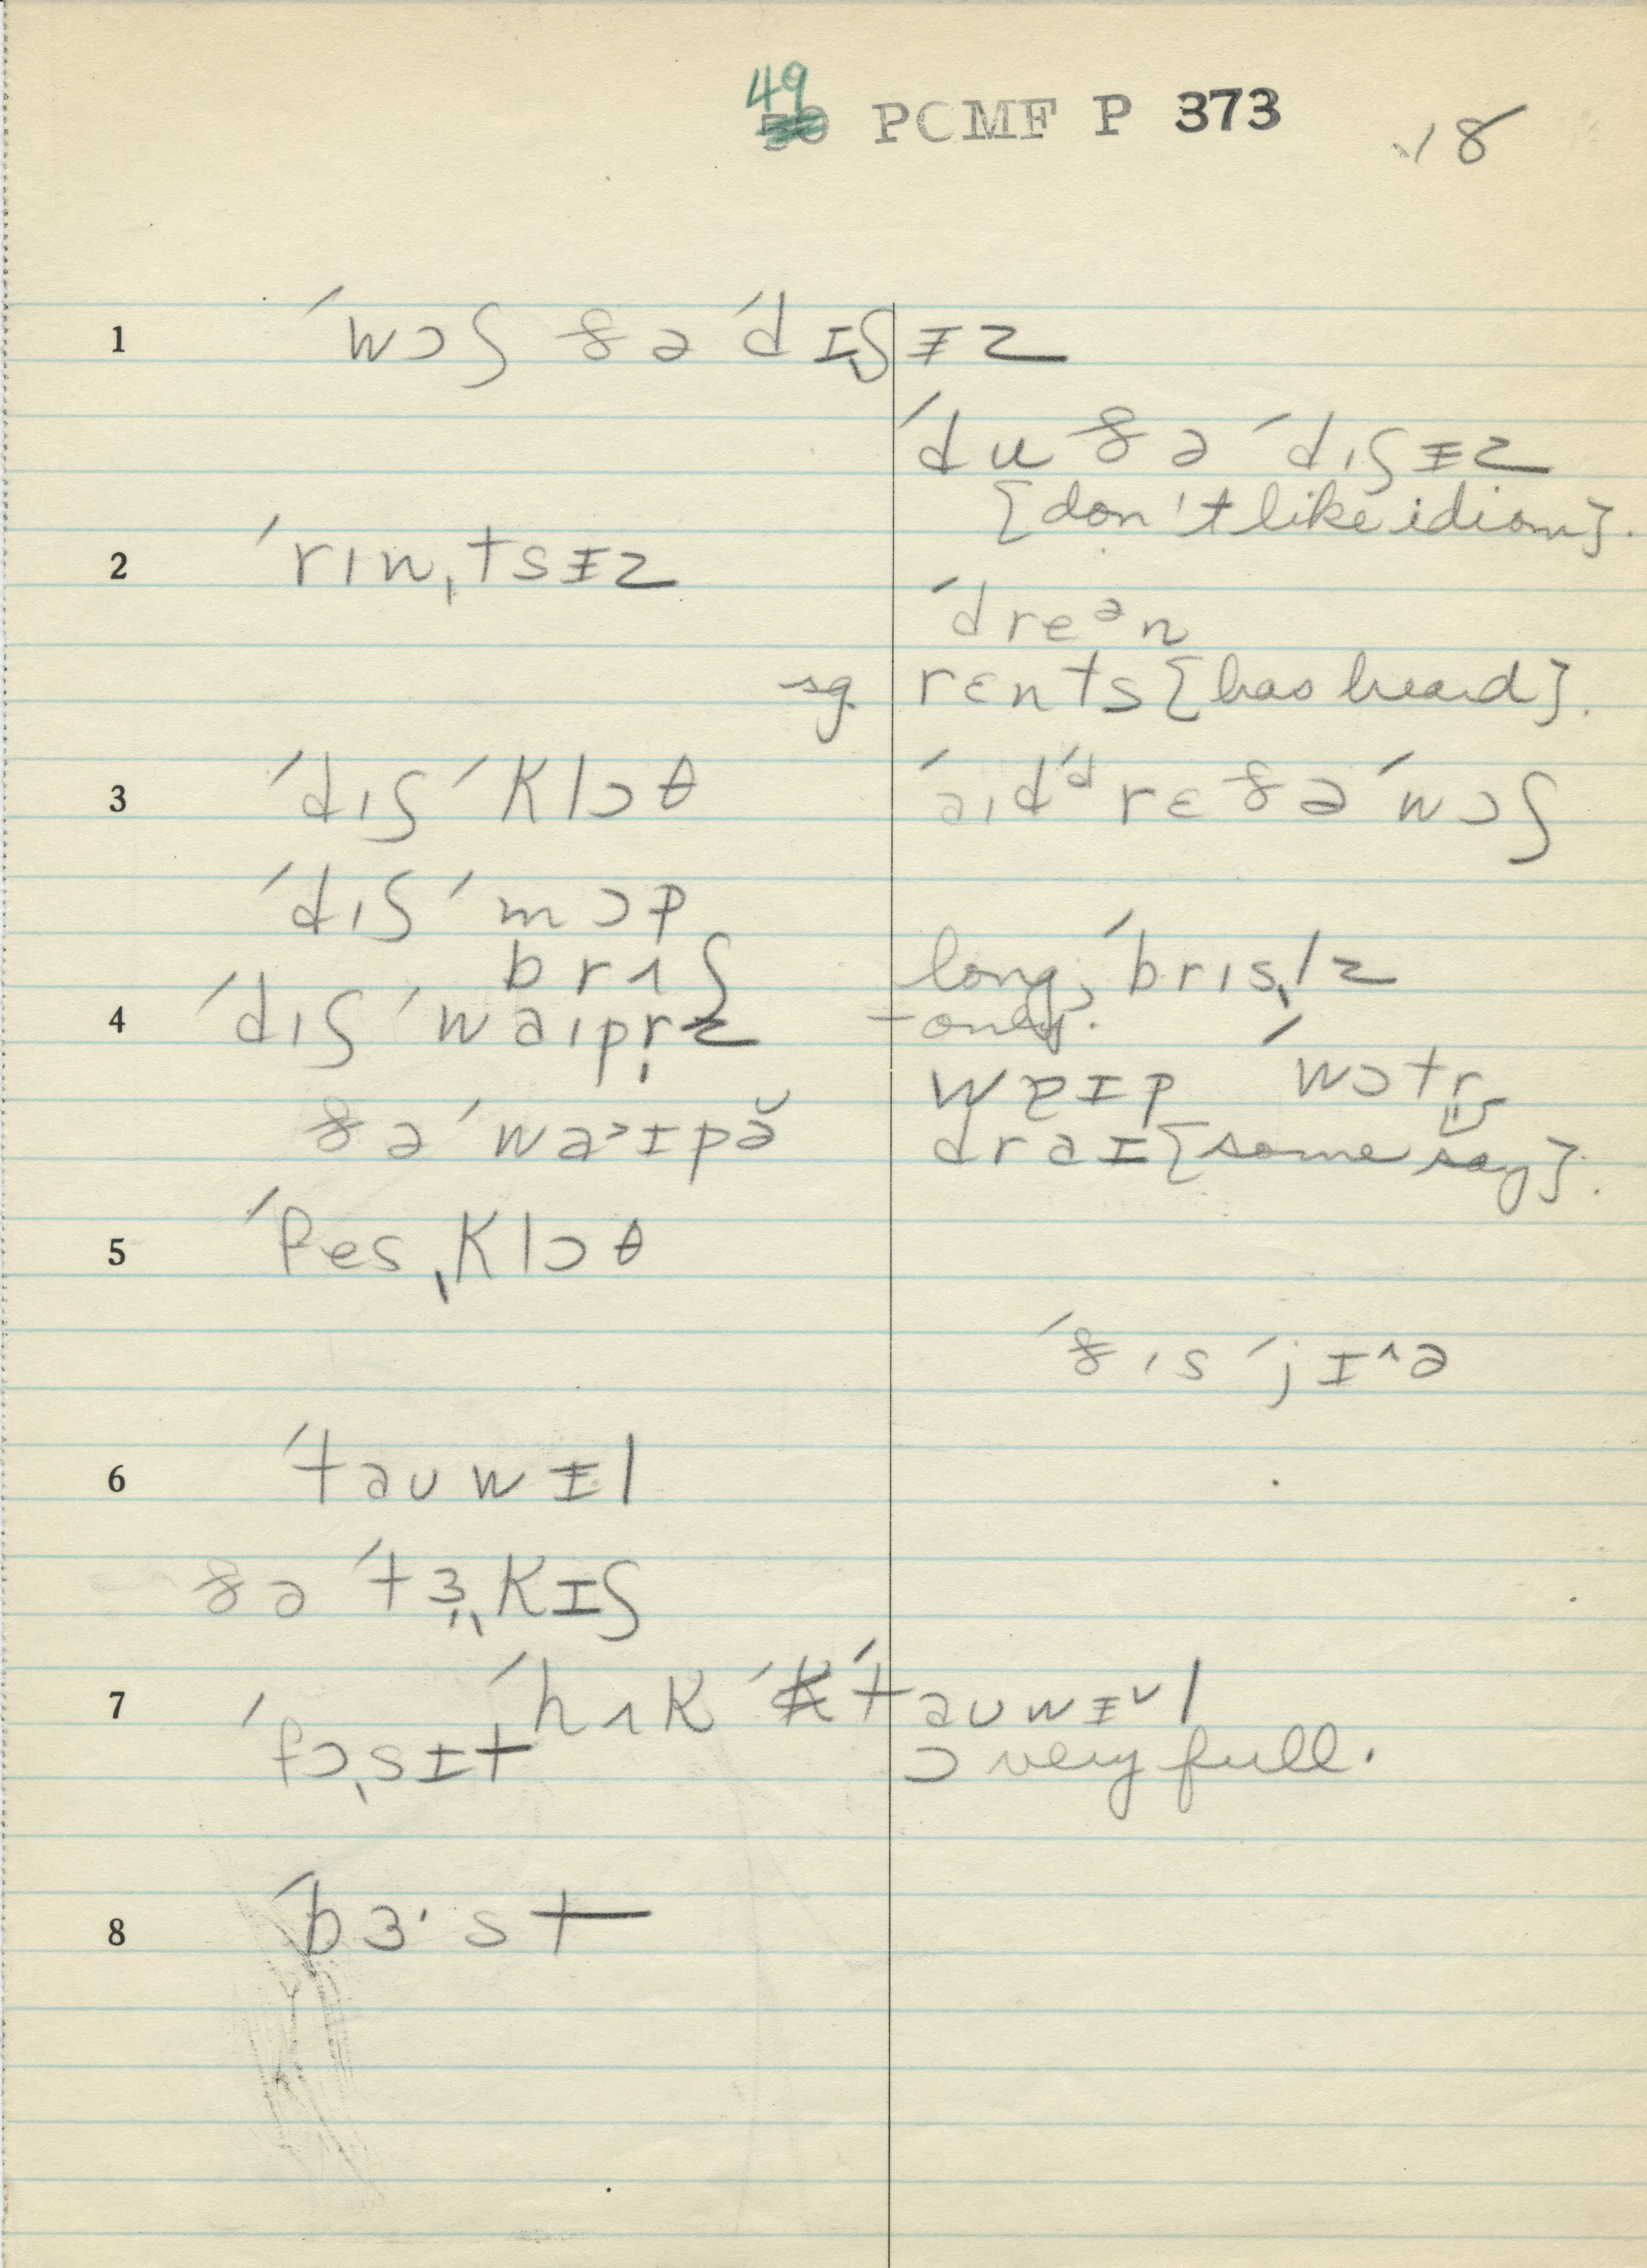 49 PCMF P 373 18
1 ˈwɔʃ ðə ˈdɪʃᵻz
ˈdu ðə ˈdɪʃᵻz
[don't like idiom].
2 ˈrɪnˌtsᵻz
ˈdreᵊn
sg. rɛnts [has heard].
3 ˈdɪʃ ˈklɔθ ˈaɪdˈᵈrɛðə ˈwɔʃ
ˈdɪʃ ˈmɔp
brʌʃ long, ˈbrɪsl̩z
4 ˈdɪʃ ˈwaɪpr̩z – only.
wɐɪp ˈwɔtr̩
ðə ˈwa˃ɪpə̆ draɪ [some say].
5 ˈfesˌklɔθ
ˈðɪs ˈjɪ^ə
6 ˈtaʊwᵻl
ðə ˈtɜ̩ˌkɪʃ
ˈhʌk ˈtaʊwᵻ˅l
7 ˈfɔˌsɪt ɔ very full.
8 ˈbɜ·st